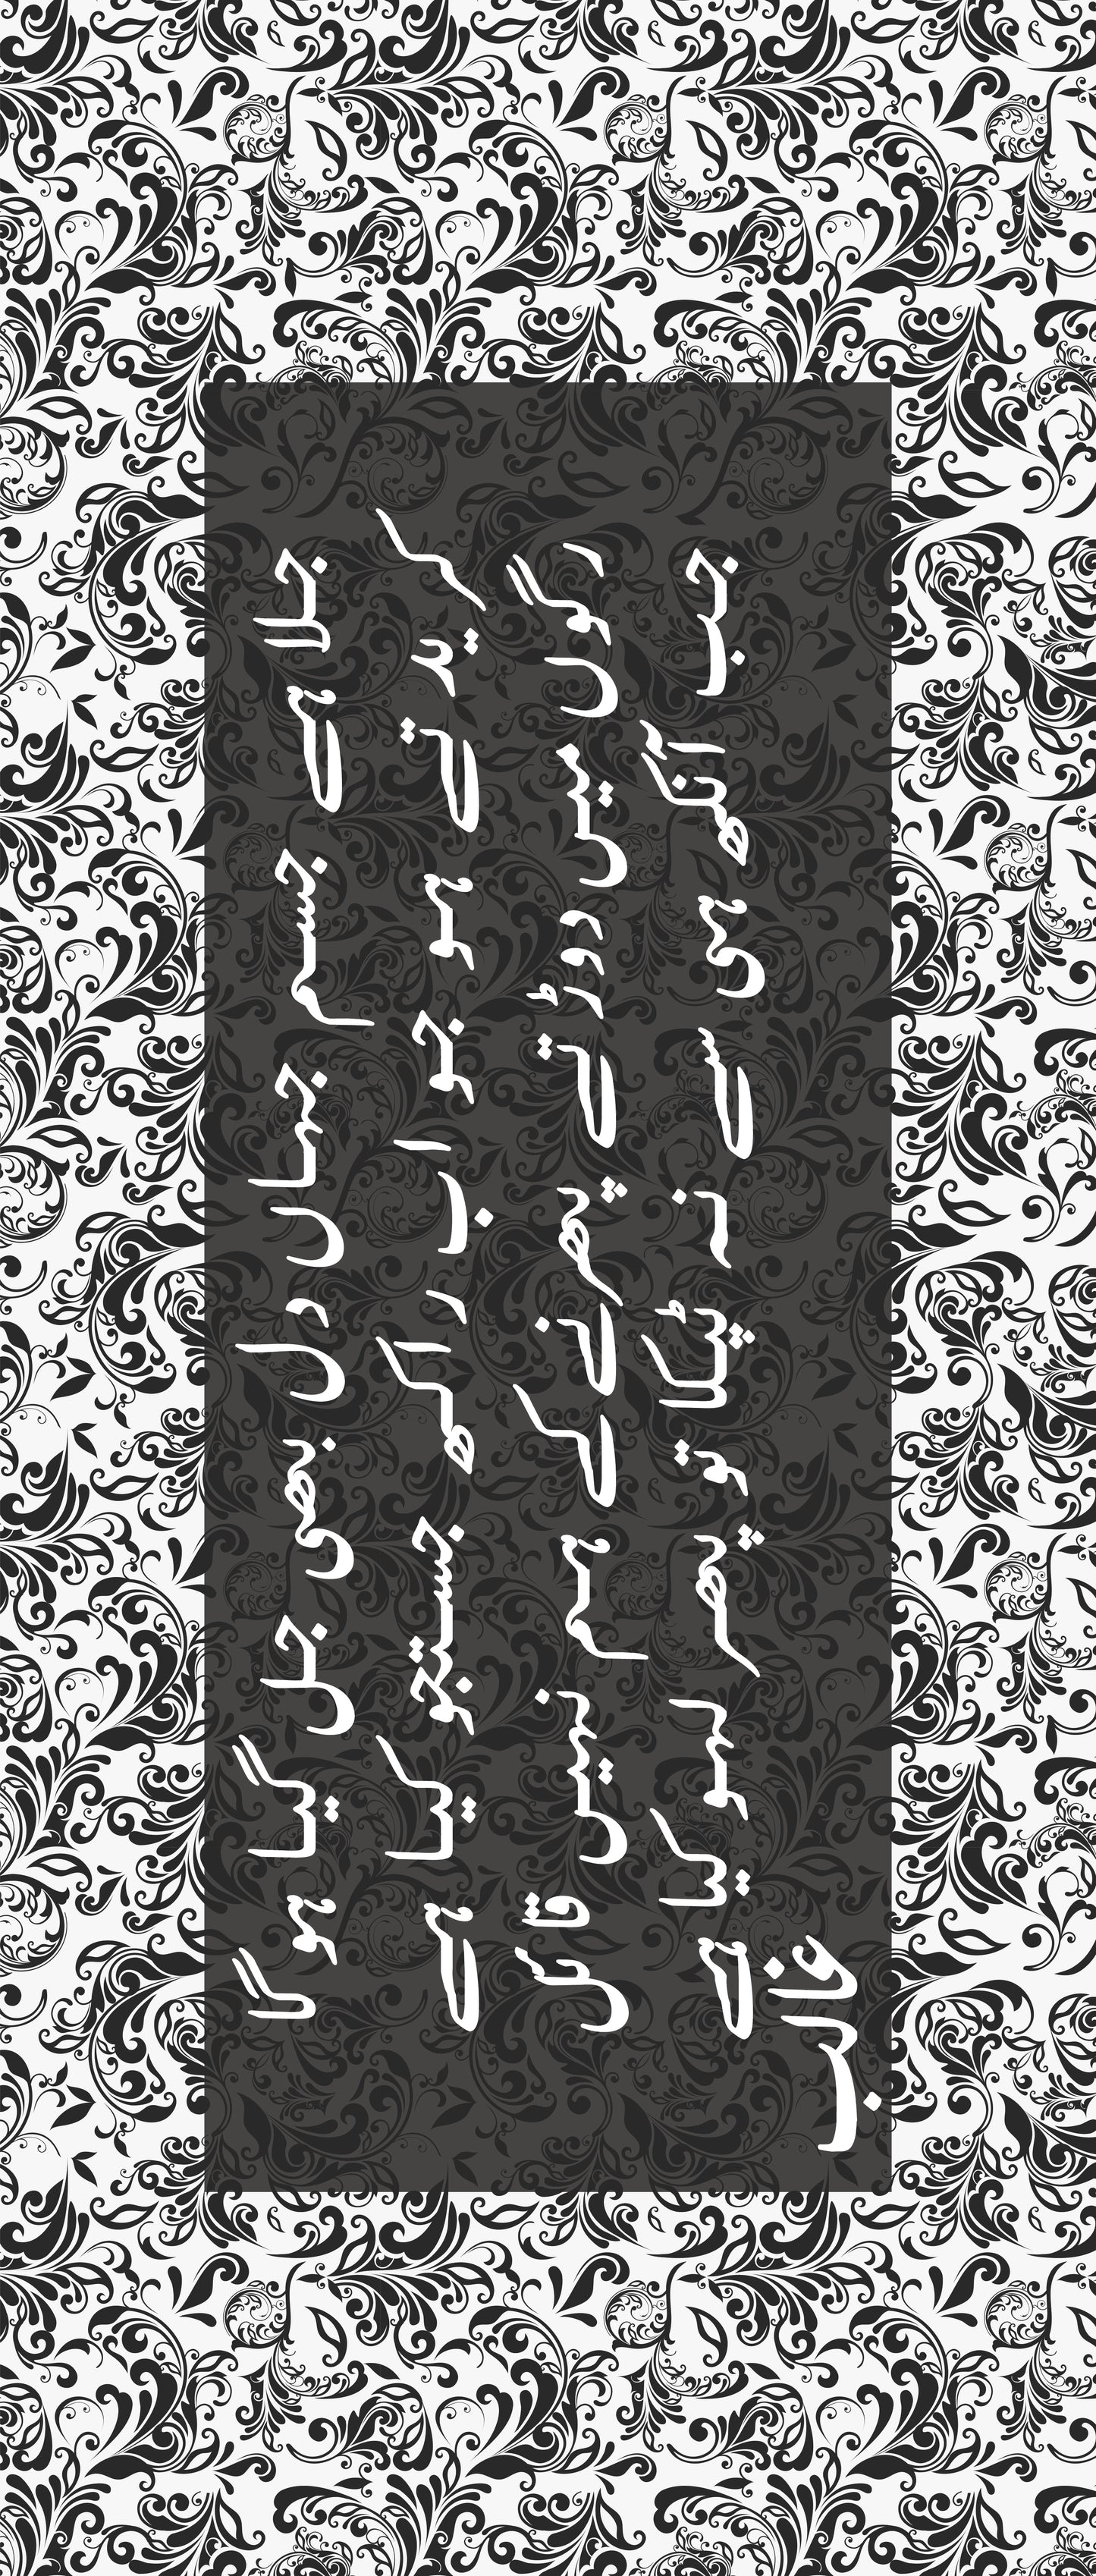 جلا ہے جسم جہاں دل بھی جل گیا ہو گا
کریدتے ہو جو اب راکھ جستجو کیا ہے
رگوں میں دوڑتے پھرنے کے ہم نہیں قائل
جب آنکھ ہی سے نہ ٹپکا تو پھر لہو کیا ہے
غالب